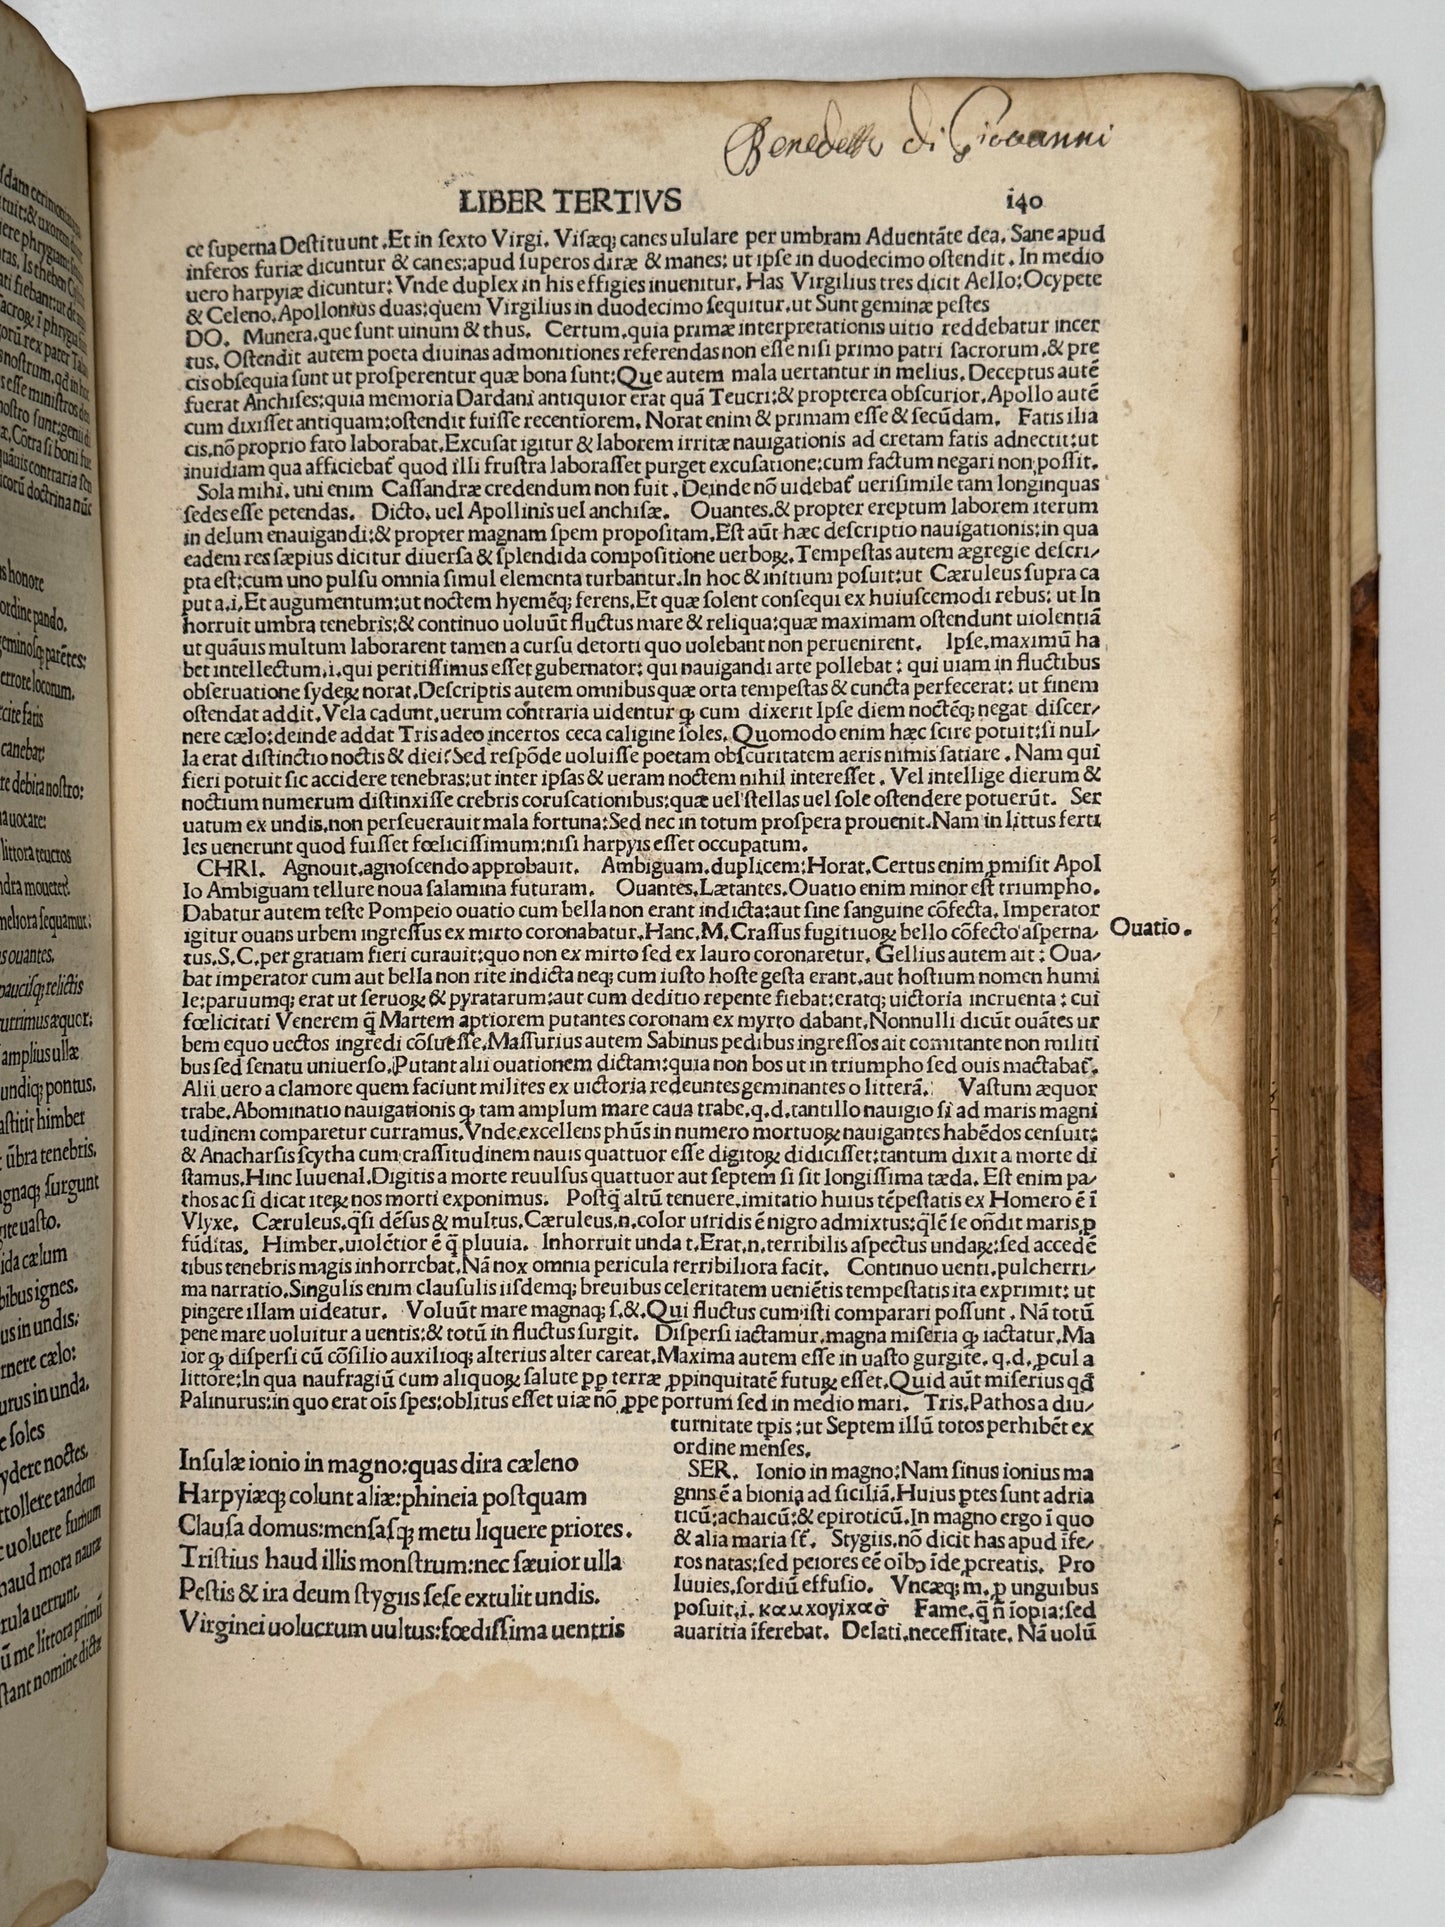 Benedetto di Giovanni
LIBER TERTIVS
i40
ce ſuperna Deſtituunt.Et in ſexto Virgi. Viſæq; canes ululare per umbram Aduentāte dea. Sane apud
inferos furiæ dicuntur & canes:apud ſuperos diræ & manes: ut ipſe in duodecimo oſtendit. In medio
uero harpyiæ dicuntur: Vnde duplex in his effigies inuenitur. Has Virgilius tres dicit Aello:Ocypete
& Celeno.Apollonius duas:quem Virgilius in duodecimo ſequitur.ut Sunt geminæ peſtes
DO. Munera.que ſunt uinum & thus. Certum.quia primæ interpretationis uitio reddebatur incer
tus. Oſtendit autem poeta diuinas admonitiones referendas non eſſe niſi primo patri ſacrorum.& pre
cis obſequia ſunt ut proſperentur quæ bona ſunt:Que autem mala uertantur in melius. Deceptus autē
fuerat Anchiſes:quia memoria Dardani antiquior erat quā Teucri:& propterea obſcurior. Apollo autē
cum dixiſſet antiquam:oſtendit fuiſſe recentiorem. Norat enim & primam eſſe & ſecūdam. Fatis ilia
cis.nō proprio fato laborabat.Excuſat igitur & laborem irritæ nauigationis ad cretam fatis adnectit:ut
inuidiam qua afficiebat̄ quod illi fruſtra laboraſſet purget excuſatione:cum factum negari non poſſit.
Sola mihi. uni enim Caſſandræ credendum non fuit. Deinde nō uidebat̄ ueriſimile tam longinquas
ſedes eſſe petendas. Dicto. uel Apollinis uel anchiſæ. Ouantes.& propter ereptum laborem iterum
in delum enauigandi:& propter magnam ſpem propoſitam.Eſt aūt hæc deſcriptio nauigationis:in qua
eadem res ſæpius dicitur diuerſa & ſplendida compoſitione uerboꝝ. Tempeſtas autem ægregie deſcri/
pta eſt:cum uno pulſu omnia ſimul elementa turbantur.In hoc & initium poſuit:ut Cæruleus ſupra ca
put a.i.Et augumentum:ut noctem hyemēq; ferens.Et quæ ſolent conſequi ex huiuſcemodi rebus: ut In
horruit umbra tenebris:& continuo uoluūt fluctus mare & reliqua:quæ maximam oſtendunt uiolentiā
ut quāuis multum laborarent tamen a curſu detorti quo uolebant non peruenirent. Ipſe.maximū ha
bet intellectum.i.qui peritiſſimus eſſet gubernator: qui nauigandi arte pollebat: qui uiam in fluctibus
obſeruatione ſydeꝝ norat.Deſcriptis autem omnibus quæ orta tempeſtas & cuncta perfecerat: ut finem
oſtendat addit.Vela cadunt.uerum contraria uidentur ꝙ cum dixerit Ipſe diem noctēq; negat diſcer/
nere cælo:deinde addat Tris adeo incertos ceca caligine ſoles. Quomodo enim hæc ſcire potuit:ſi nul/
la erat diſtinctio noctis & diei?Sed reſpōde uoluiſſe poetam obſcuritatem aeris nimis ſatiare. Nam qui
fieri potuit ſic accidere tenebras:ut inter ipſas & ueram noctem nihil intereſſet. Vel intellige dierum &
noctium numerum diſtinxiſſe crebris coruſcationibus:quæ uel ſtellas uel ſole oſtendere potuerūt. Ser
uatum ex undis.non perſeuerauit mala fortuna:Sed nec in totum proſpera prouenit.Nam in littus ferti
les uenerunt quod fuiſſet fœliciſſimum:niſi harpyis eſſet occupatum.
CHRI. Agnouit.agnoſcendo approbauit. Ambiguam.duplicem:Horat.Certus enim ꝓmiſit Apol
lo Ambiguam tellure noua ſalamina futuram. Ouantes.Lætantes.Ouatio enim minor eſt triumpho.
Dabatur autem teſte Pompeio ouatio cum bella non erant indicta:aut ſine ſanguine cōfecta. Imperator
igitur ouans urbem ingreſſus ex mirto coronabatur.Hanc.M.Craſſus fugitiuoꝝ bello cōfecto aſperna/
Ouatio.
tus.S.C.per gratiam fieri curauit:quo non ex mirto ſed ex lauro coronaretur. Gellius autem ait: Oua/
bat imperator cum aut bella non rite indicta neq; cum iuſto hoſte geſta erant.aut hoſtium nomen humi
le:paruumq; erat ut ſeruoꝝ & pyratarum:aut cum deditio repente fiebat:eratq; uictoria incruenta: cui
fœlicitati Venerem q̄ Martem aptiorem putantes coronam ex myrto dabant.Nonnulli dicūt ouātes ur
bem equo uectos ingredi cōſueſſe.Maſſurius autem Sabinus pedibus ingreſſos ait comitante non militi
bus ſed ſenatu uniuerſo.Putant alii ouationem dictam:quia non bos ut in triumpho ſed ouis mactabat̄.
Alii uero a clamore quem faciunt milites ex uictoria redeuntes geminantes o litterā. Vaſtum æquor
trabe.Abominatio nauigationis ꝙ tam amplum mare caua trabe.q.d.tantillo nauigio ſi ad maris magni
tudinem comparetur curramus.Vnde.excellens phūs in numero mortuoꝝ nauigantes habēdos cenſuit:
& Anacharſis ſcytha cum craſſitudinem nauis quattuor eſſe digitoꝝ didiciſſet:tantum dixit a morte di
ſtamus.Hinc Iuuenal.Digitis a morte reuulſus quattuor aut ſeptem ſi ſit longiſſima tæda. Eſt enim pa/
thos ac ſi dicat iteꝝ nos morti exponimus. Poſtq̄ altū tenuere.imitatio huius tēpeſtatis ex Homero ē ī
Vlyxe. Cæruleus.q̄ſi dēſus & multus.Cæruleus.n.color uiridis ē nigro admixtus:q̄lē ſe oñdit maris ꝓ
fūditas. Himber.uiolētior ē q̄ pluuia. Inhorruit unda t.Erat.n.terribilis aſpectus undaꝝ:ſed accedē
tibus tenebris magis inhorrebat.Nā nox omnia pericula terribiliora facit. Continuo uenti.pulcherri/
ma narratio.Singulis enim clauſulis iiſdemq; breuibus celeritatem ueniētis tempeſtatis ita exprimit: ut
pingere illam uideatur. Voluūt mare magnaq; ſ.&.Qui fluctus cum iſti comparari poſſunt. Nā totū
pene mare uoluitur a uentis:& totū in fluctus ſurgit. Diſperſi iactamur.magna miſeria ꝙ iactatur.Ma
ior ꝙ diſperſi cū cōſilio auxilioq; alterius alter careat.Maxima autem eſſe in uaſto gurgite. q.d. ꝓcul a
littore:In qua naufragiū cum aliquoꝝ ſalute ꝓp terræ ꝓpinquitatē futuꝝ eſſet.Quid aūt miſerius qđ
Palinurus:in quo erat oīs ſpes:oblitus eſſet uiæ nō ꝓpe portum ſed in medio mari. Tris.Pathos a diu/
turnitate tꝑis:ut Septem illū totos perhibēt ex
ordine menſes.
Inſulæ ionio in magno:quas dira cæleno
Harpyiæq; colunt aliæ:phineia poſtquam
Clauſa domus:menſaſq; metu liquere priores.
Triſtius haud illis monſtrum:nec ſæuior ulla
Peſtis & ira deum ſtygiis ſeſe extulit undis.
Virginei uolucrum uultus:fœdiſſima uentris
SER. Ionio in magno:Nam ſinus ionius ma
gnns ē a bionia ad ſiciliā.Huius ꝑtes ſunt adria
ticū:achaicū:& epiroticū.In magno ergo ī quo
& alia maria ſt̄. Stygiis.nō dicit has apud īfe/
ros natas:ſed peiores eē oībꝰ īde ꝓcreatis. Pro
luuies.ſordiū effuſio. Vncæq; m. ꝓ unguibus
poſuit.i. Fame.q̄ ñ īopia:ſed
auaritia īferebat. Delati.neceſſitate. Nā uolū